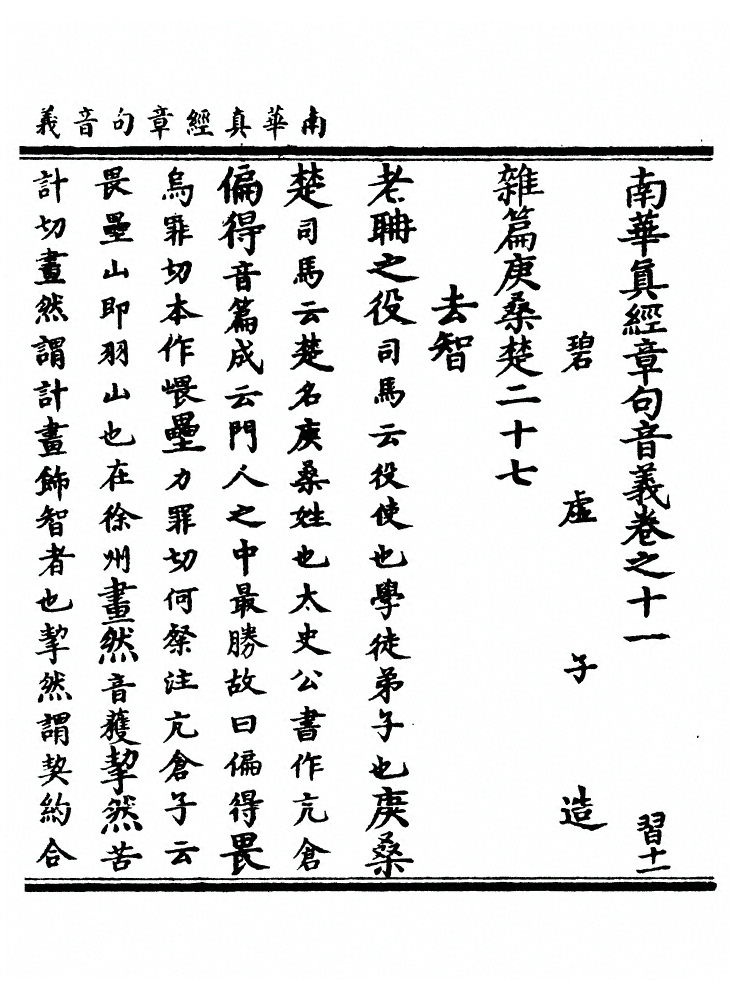 南華真經章句音義
南華眞經章句音義卷之十一　習十一
碧虛子造
雜篇庚桑楚二十七
去智
老聃之役司馬云役使也學徒弟子也庚桑
楚司馬云楚名庚桑姓也太史公書作亢倉
偏得音篇成云門人之中最勝故曰偏得畏
烏罪切本作喂壘力罪切何粲注亢倉子云
畏壘山即羽山也在徐州畫然音䕶挈然苦
計切畫然謂計畫飾智者也挈然謂契約合